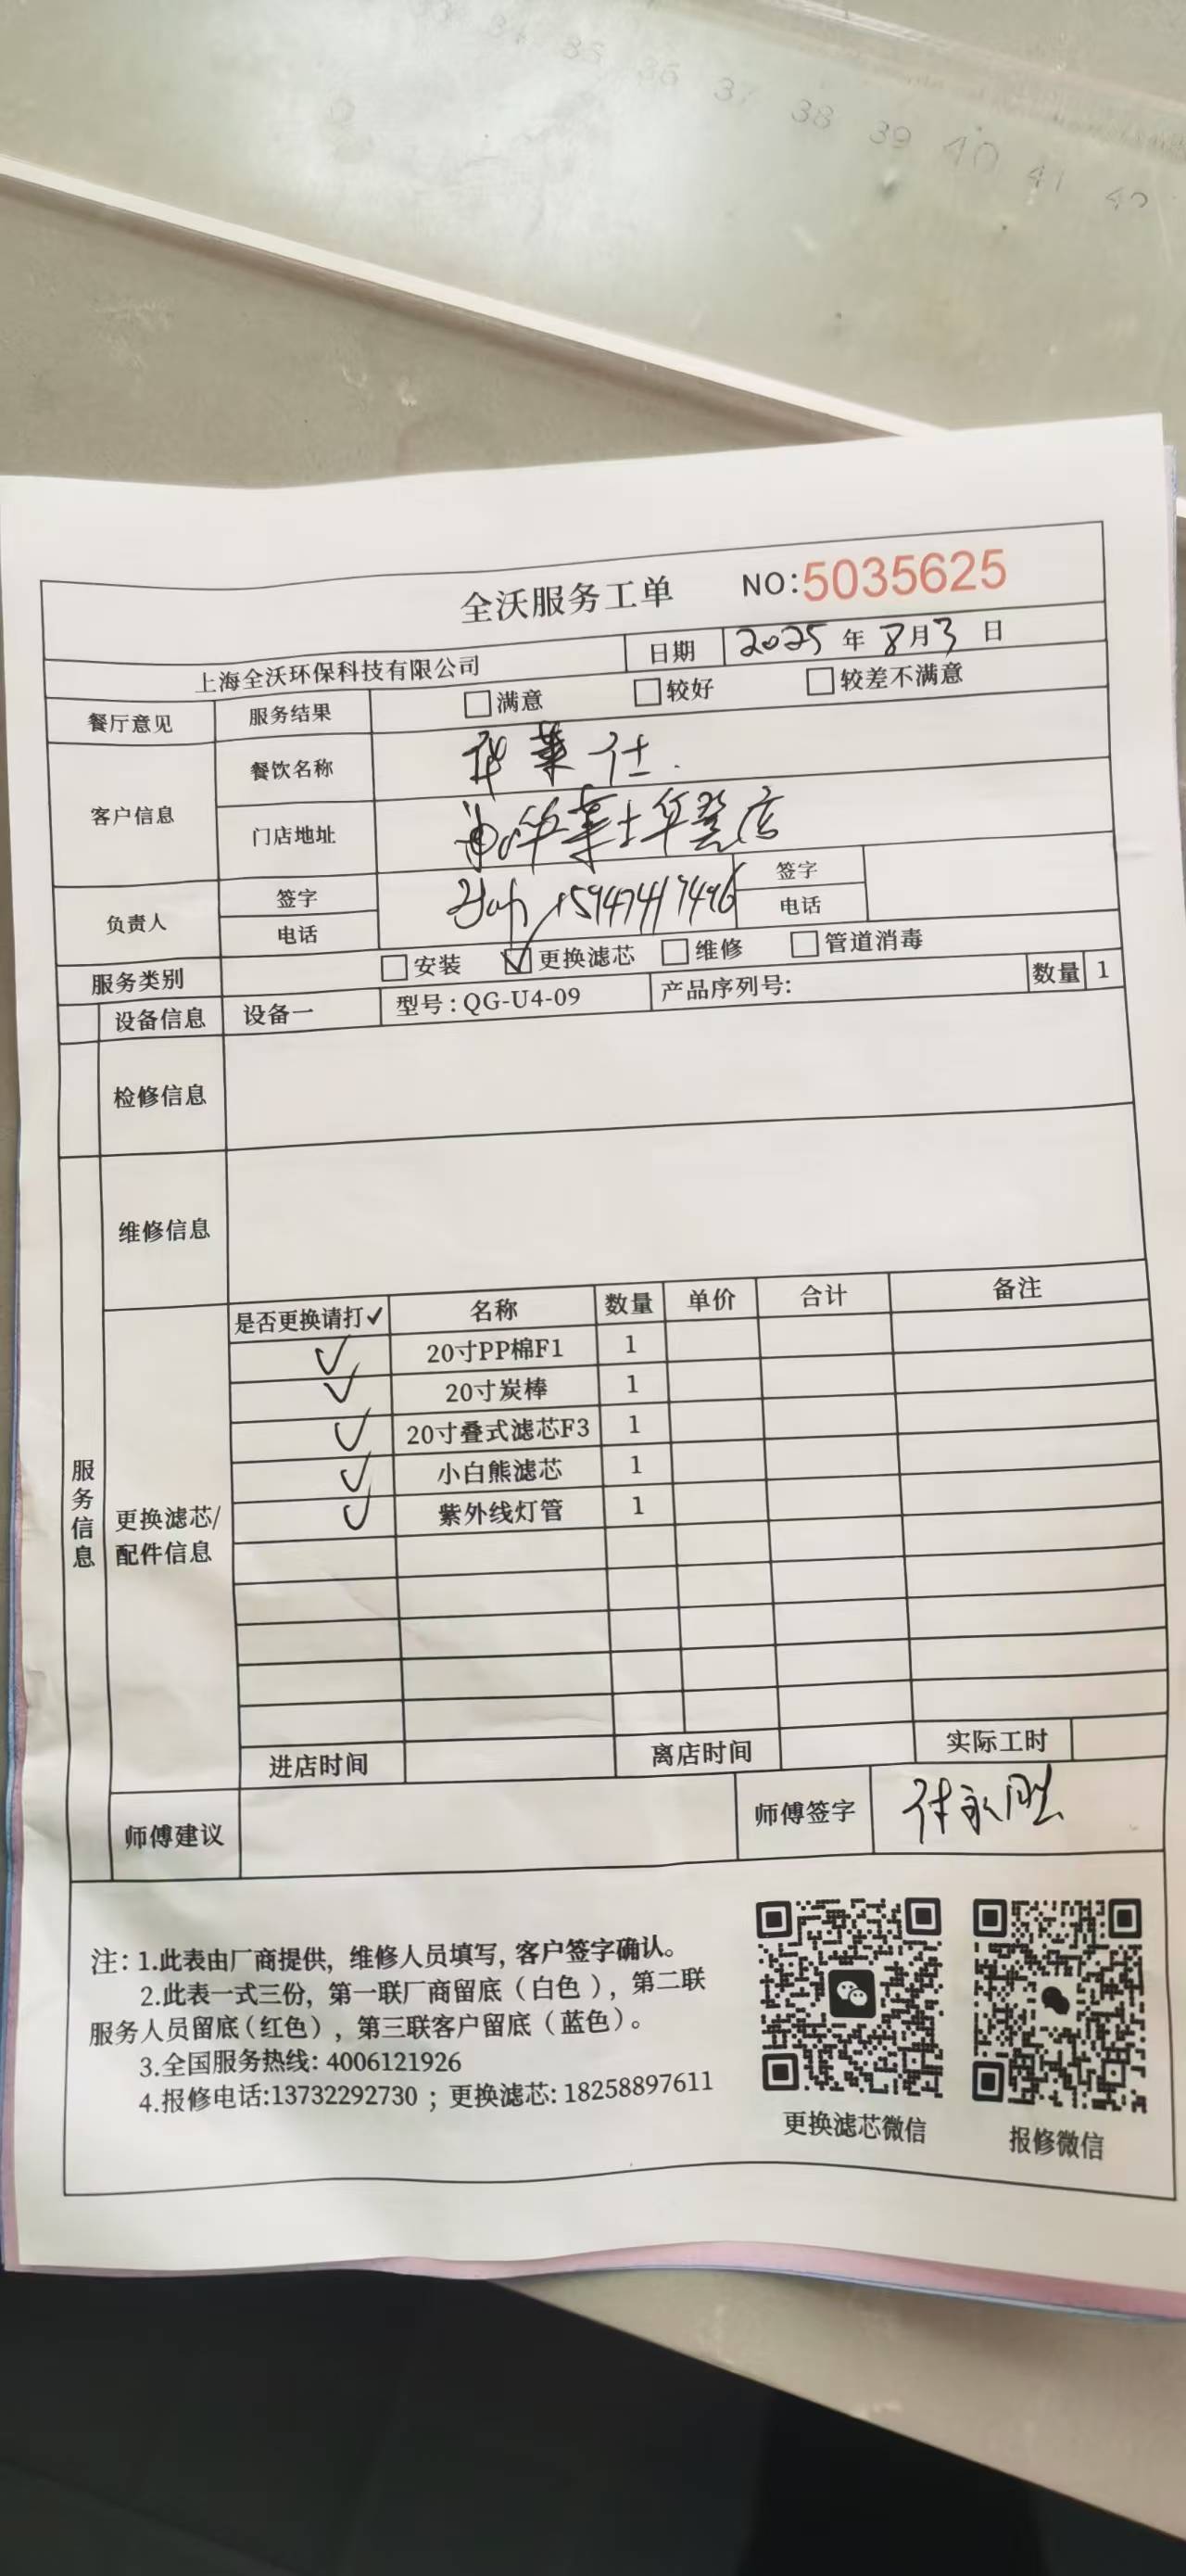 34 35 36 37 38 39 40 41 42
全沃服务工单 NO:5035625
上海全沃环保科技有限公司 日期 2025 年 8月3 日
餐厅意见 服务结果 满意 较好 较差不满意
客户信息 餐饮名称 华莱仕
门店地址 华莱士华登店
负责人 签字 签字
电话 15947417496 电话
服务类别 安装 ✓ 更换滤芯 维修 管道消毒
设备信息 设备一 型号:QG-U4-09 产品序列号: 数量 1
检修信息
维修信息
服务信息
更换滤芯/配件信息
是否更换请打✓ 名称 数量 单价 合计 备注
✓ 20寸PP棉F1 1
✓ 20寸炭棒 1
✓ 20寸叠式滤芯F3 1
✓ 小白熊滤芯 1
✓ 紫外线灯管 1
进店时间 离店时间 实际工时
师傅建议 师傅签字
注: 1.此表由厂商提供, 维修人员填写, 客户签字确认。
2.此表一式三份, 第一联厂商留底(白色), 第二联
服务人员留底(红色), 第三联客户留底(蓝色)。
3.全国服务热线: 4006121926
4.报修电话:13732292730 ; 更换滤芯: 18258897611
更换滤芯微信 报修微信